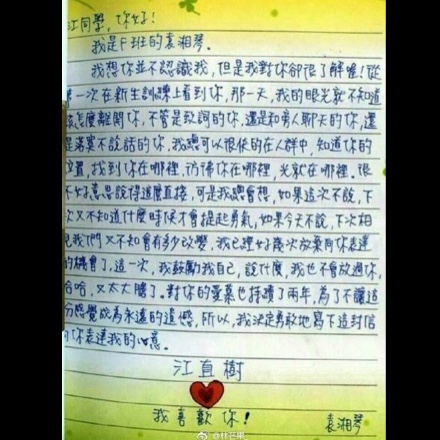 江同學,你好!
我是F班的袁湘琴。
我想你並不認識我,但是我對你卻很了解喔!從
第一次在新生訓練上看到你,那一天,我的眼光就不知道
該怎麼離開你,不管是致詞的你,還是和旁人聊天的你,還
是落寞不說話的你,我總可以很快的在人群中,知道你的
位置,找到你在哪裡,彷彿你在哪裡,光就在哪裡,很
不好意思說得這麼直接,可是我總會想,如果這次不說,下
次又不知道什麼時候才會提起勇氣,如果今天不說,下次相
見我們又不知會有多少改變,我已經好幾次放棄向你表達
的機會了,這一次,我鼓勵我自己,說什麼,我也不會放過你,
哈哈,又太大膽了。對你的愛慕也持續了兩年,為了不讓這
份感覺成為永遠的遺憾,所以,我決定勇敢地寫下這封信
向你表達我的心意。
江直樹
我喜歡你!
袁湘琴